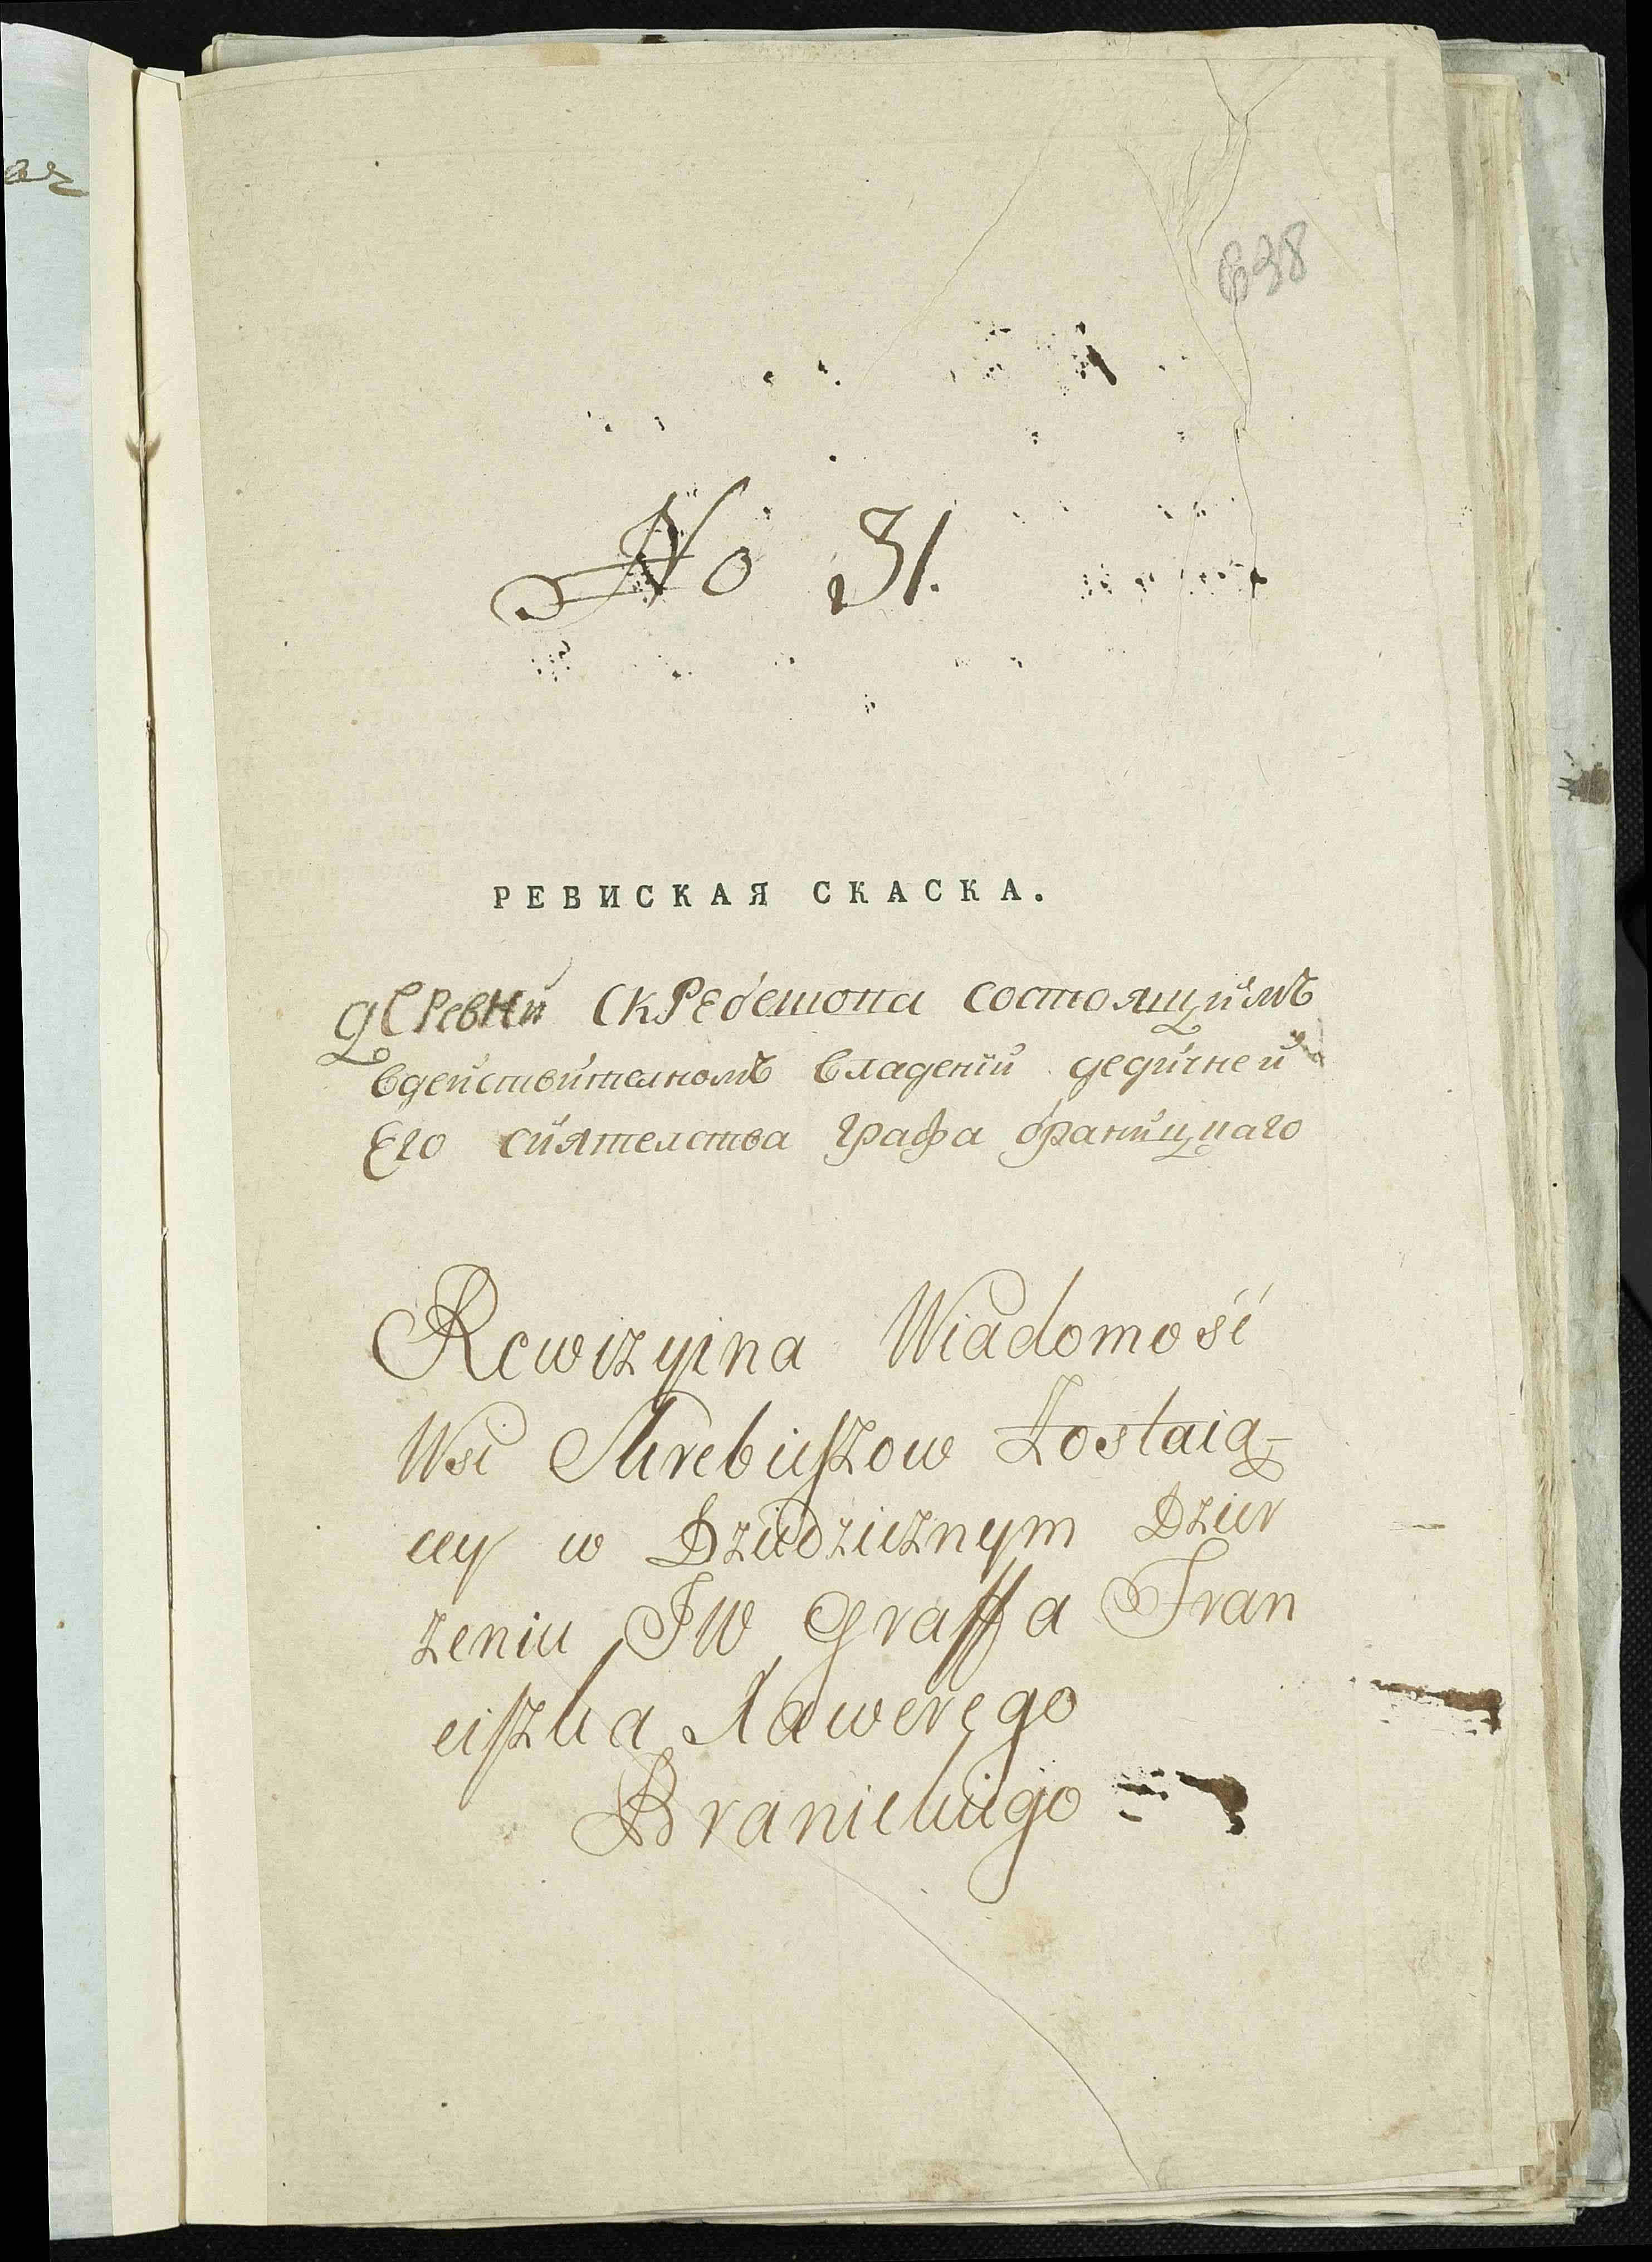 638
No 31.
РЕВИСКАЯ СКАСКА.
деревни Скребешова состоящимъ
вдействителномъ владении дедичней
Его сиятелства графа браницкаго
Rewizyina Wiadomość
Wsi Skrebiszow Zostaią-
cey w Dziedzicznym Dzier
zeniu JW Graffa Fran
ciszka Xawerego
Branickiego